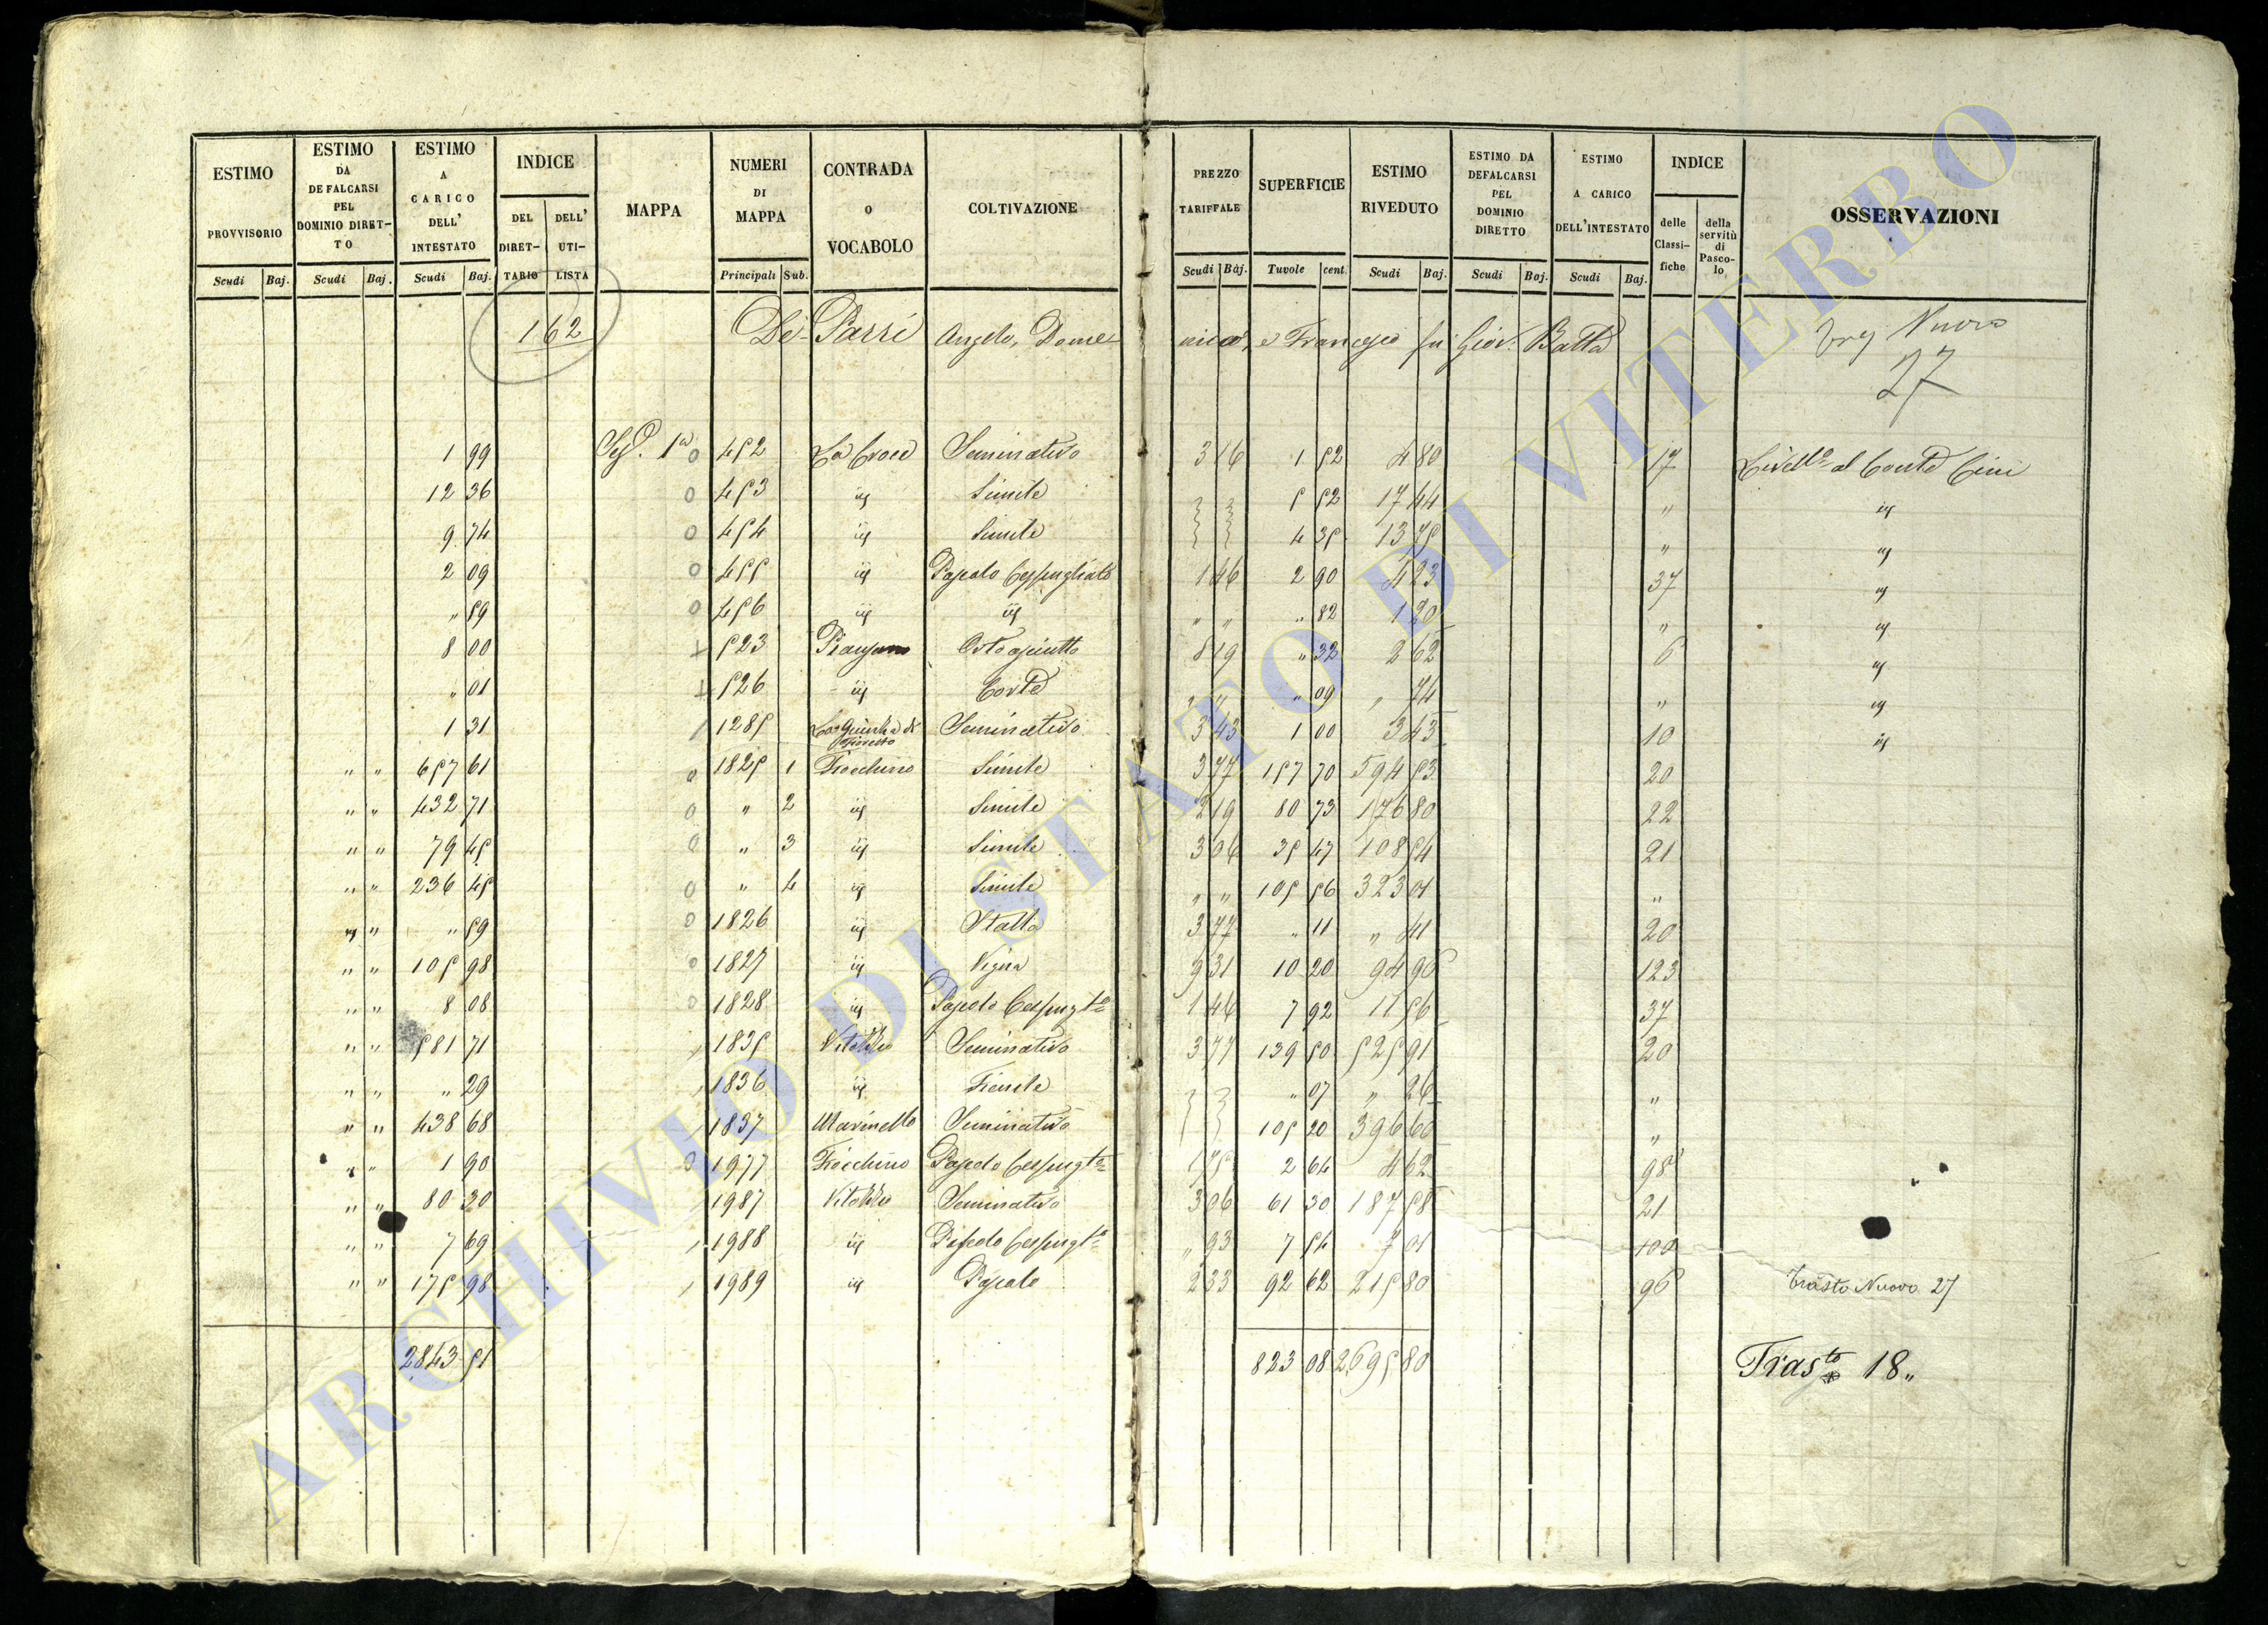 ESTIMO PROVVISORIO | ESTIMO DA DEFALCARSI PEL DOMINIO DIRET-TO | ESTIMO A CARICO DELL' INTESTATO | INDICE DEL DIRET-TARIO | DELL' UTI-LISTA | MAPPA | NUMERI DI MAPPA | CONTRADA O VOCABOLO | COLTIVAZIONE | PREZZO TARIFFALE | SUPERFICIE | ESTIMO RIVEDUTO | ESTIMO DA DEFALCARSI PEL DOMINIO DIRETTO | ESTIMO A CARICO DELL'INTESTATO | INDICE delle Classi-fiche | della servitù di Pasco-lo | OSSERVAZIONI
Scudi Baj. | Scudi Baj. | Scudi Baj. | Principali Sub. | Scudi Baj. | Tavole cent. | Scudi Baj. | Scudi Baj. | Scudi Baj.
162 De-Parri Angelo, Dome- nico, e Francesco fu Giov. Batta Nuovo
27
1 99 1a 0 452 La Croce Seminativo 3 16 1 52 4 80 17 Livello al Conte Cini
12 36 0 453 iij Simile 5 52 17 44 " iij
9 74 0 454 iij Simile 4 35 13 75 " iij
2 09 0 455 iij Pascolo Cespugliato 1 46 2 90 4 23 37 iij
" 59 0 456 iij iij " " " 82 1 20 " iij
8 00 523 Piansano Orto asciutto 8 19 " 32 2 62 6 iij
" 01 526 iij Corte " " " 09 " 74 " iij
1 31 1285 Seminativo 3 43 1 00 3 43 10 iij
" " 657 61 0 1825 1 Fiocchino Simile 3 77 157 70 594 53 20
" " 432 71 0 " 2 iij Simile 2 19 80 73 176 80 22
" " 79 45 0 " 3 iij Simile 3 06 35 47 108 54 21
" " 236 45 0 " 4 iij Simile " " 105 56 323 01 "
" " " 59 0 1826 iij Stalla 3 77 " 11 " 41 20
" " 105 98 0 1827 iij Vigna 9 31 10 20 94 96 123
" " 8 08 0 1828 iij Pascolo Cespugto 1 46 7 92 11 56 37
" " 581 71 1835 Vitozzo Seminativo 3 77 139 50 525 91 20
" " " 29 1836 iij Fienile " 07 " 26 "
" " 438 68 1837 Marinello Seminativo 105 20 396 60 "
" " 1 90 0 1977 Fiocchino Pascolo Cespugto 1 75 2 64 4 62 98
" " 80 20 1987 Vitozzo Seminativo 3 06 61 30 187 58 21
" " 7 69 1988 iij Pascolo Cespugto " 93 7 54 7 01 100
" " 175 98 1989 iij Pascolo 2 33 92 62 215 80 96 Trasto Nuovo 27
2843 51 823 08 2695 80 Trasto 18"
ARCHIVIO DI STATO DI VITERBO